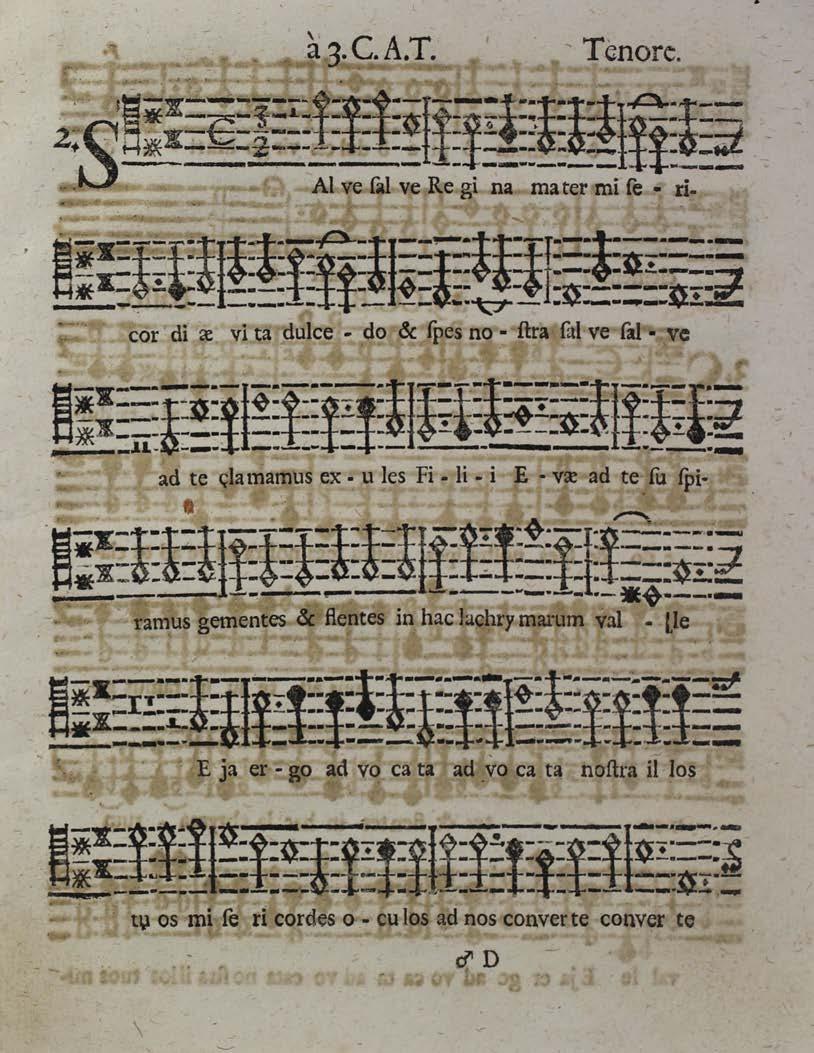 à 3. C. A. T. Tenore.
2. S
Al ve ſal ve Re gi na ma ter mi ſe - ri-
cor di æ vi ta dulce - do & ſpes no - ſtra ſal ve ſal - ve
ad te clamamus ex - u les Fi - li - i E - væ ad te ſu ſpi-
ramus gementes & flentes in hac lachry marum val - le
E ja er - go ad vo ca ta ad vo ca ta noſtra il los
tu os mi ſe ri cordes o - cu los ad nos converte conver te
♂ D